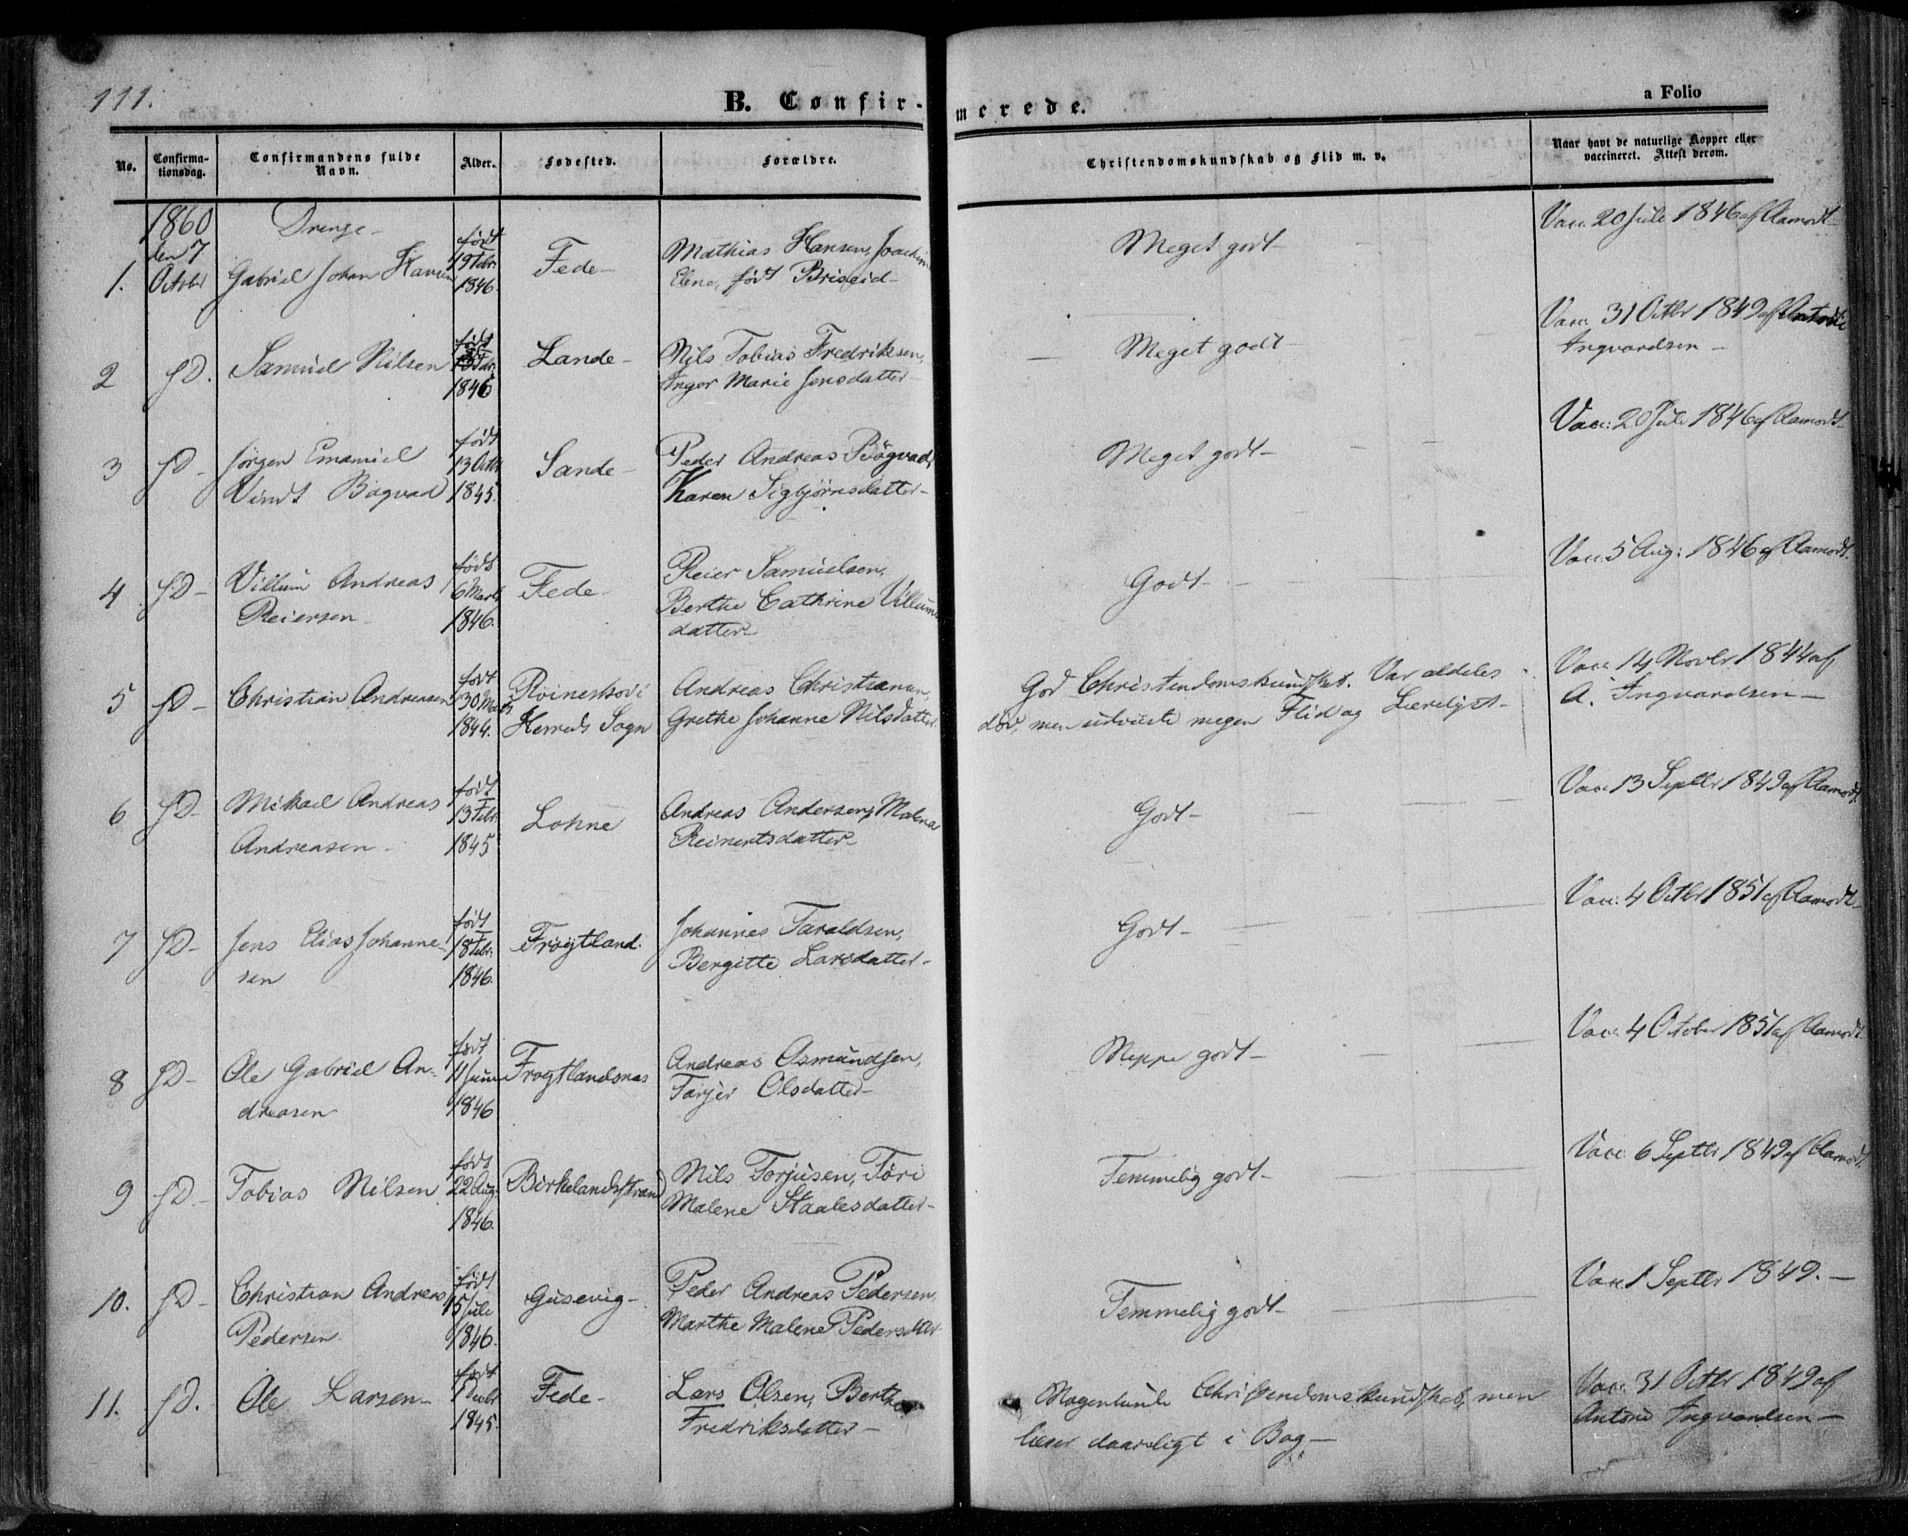 111.
B. Confirmerede.
a Folio
No.
Confirmationsdag.
Confirmandens fulde Navn.
Alder.
Fødested.
Forældre.
Christendomskundskab og Flid m. v.
Naar havt de naturlige Kopper eller vaccineret. Attest derom.
1860 Drenge
den 7 October
1. Gabriel Johan Hansen født 19 Febr 1846. Fede Mathias Hansen, Joachim
Elene, født Briseid Meget godt Vacc. 20 Juli 1846 af Aamodt
2 d. Samuel Nilsen født Febr 1846 Lande Nils Tobias Fredriksen,
Inger Marie Jensdatter Meget godt Vacc. 31 Octbr 1849 af
Ingvardsen
3 d. Jørgen Emanuel født 13 Octbr 1845. Sande Peder Andreas Bøgvad,
Vindt Bøgvad Karen Sigbjørnsdatter Meget godt Vacc. 20 Juli 1846 af Aamodt
4 d. Villum Andreas født 6 Marts 1846. Fede Reier Samuelsen,
Reiersen Berthe Cathrine Villums
datter Godt Vacc. 5 Aug. 1846 af Aamodt.
5 d. Christian Andreasen født 30 Mai 1844. Andreas Christiansen,
Herreds Sogn Grethe Johanne Nilsdatter
God Christendomskundskab. Var aldeles
døv, men udviste megen Flid og Lærelyst
Vacc 14 Novbr 1844 af
A. Ingvardsen
6 d. Mikael Andreas født 13 Febr 1845 Lohne Andreas Andersen, Malena
Andreasen Reinertsdatter Godt Vacc 13 Septbr 1849 af Aamodt.
7 d. Jens Elias Johanne- født 18 Febr. 1846. Frøytland. Johannes Taraldsen,
sen Bergitte Larsdatter Godt Vacc. 4 Octbr 1851 af Aamodt
8 d. Ole Gabriel An- født 11 Juni 1846 Frøytlandsnæs Andreas Asmundsen,
dreasen Tarjer Olsdatter Neppe godt Vacc. 4 October 1851 af Aamodt
9 d. Tobias Nilsen født 22 Aug. 1846. Birkelandsstrand Nils Torjusen, Tøri
Malene Staalesdatter Temmelig godt Vacc 6 Septbr 1849 af Aamodt.
10. d. Christian Andreas født 15 Juli 1846. Gusevig Peder Andreas Pedersen,
Pedersen Marthe Malene Pedersdtr Temmelig godt Vacc 1 Septbr 1849.
11. d. Ole Larsen født 1 Decbr 1845. Fede Lars Olsen, Berthe
Fredriksdatter
Nogenlunde Christendomskundskab, men
læser daarligt i Bog
Vacc 31 Octbr 1849 af
Antoni Ingvardsen